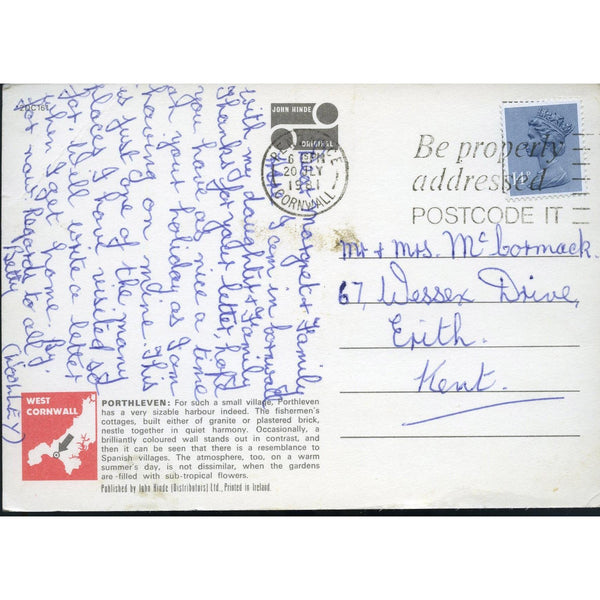 2DC161
JOHN HINDE
ORIGINAL
PENZANCE
6 PM
20 JLY
1981
CORNWALL
Be properly
addressed
POSTCODE IT
Dear Margret & Family
I am in Cornwall
with my daughter & Family
Thanks for your letter, hope
you have as nice a time
on your holiday as I am
having on mine. This
is just one of the many
places I have visited so
far. Will write a letter
when I get home. By
for now. Regards to all,
Betty
Mr & Mrs. McCormack.
67, Wessex Drive,
Erith.
Kent.
WEST
CORNWALL
PORTHLEVEN: For such a small village, Porthleven
has a very sizable harbour indeed. The fishermen's
cottages, built either of granite or plastered brick,
nestle together in quiet harmony. Occasionally, a
brilliantly coloured wall stands out in contrast, and
then it can be seen that there is a resemblance to
Spanish villages. The atmosphere, too, on a warm
summer's day, is not dissimilar, when the gardens
are filled with sub-tropical flowers.
Published by John Hinde (Distributors) Ltd., Printed in Ireland.